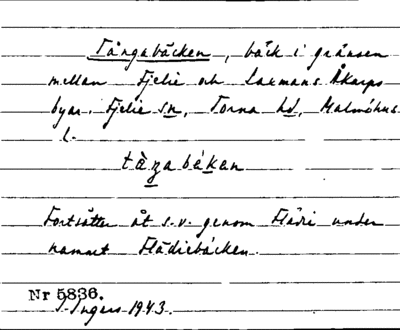 Tångabäcken, bäck i gränsen
mellan Fjelie och Laxmans Åkarps
byar, Fjelie sn, Torna hd, Malmöhus
l.
tàʒabɛ́kɛn
Fortsätter åt s.v. genom Flädie under
namnet Flädiebäcken.
Nr 5836.
I. Ingers 1943.